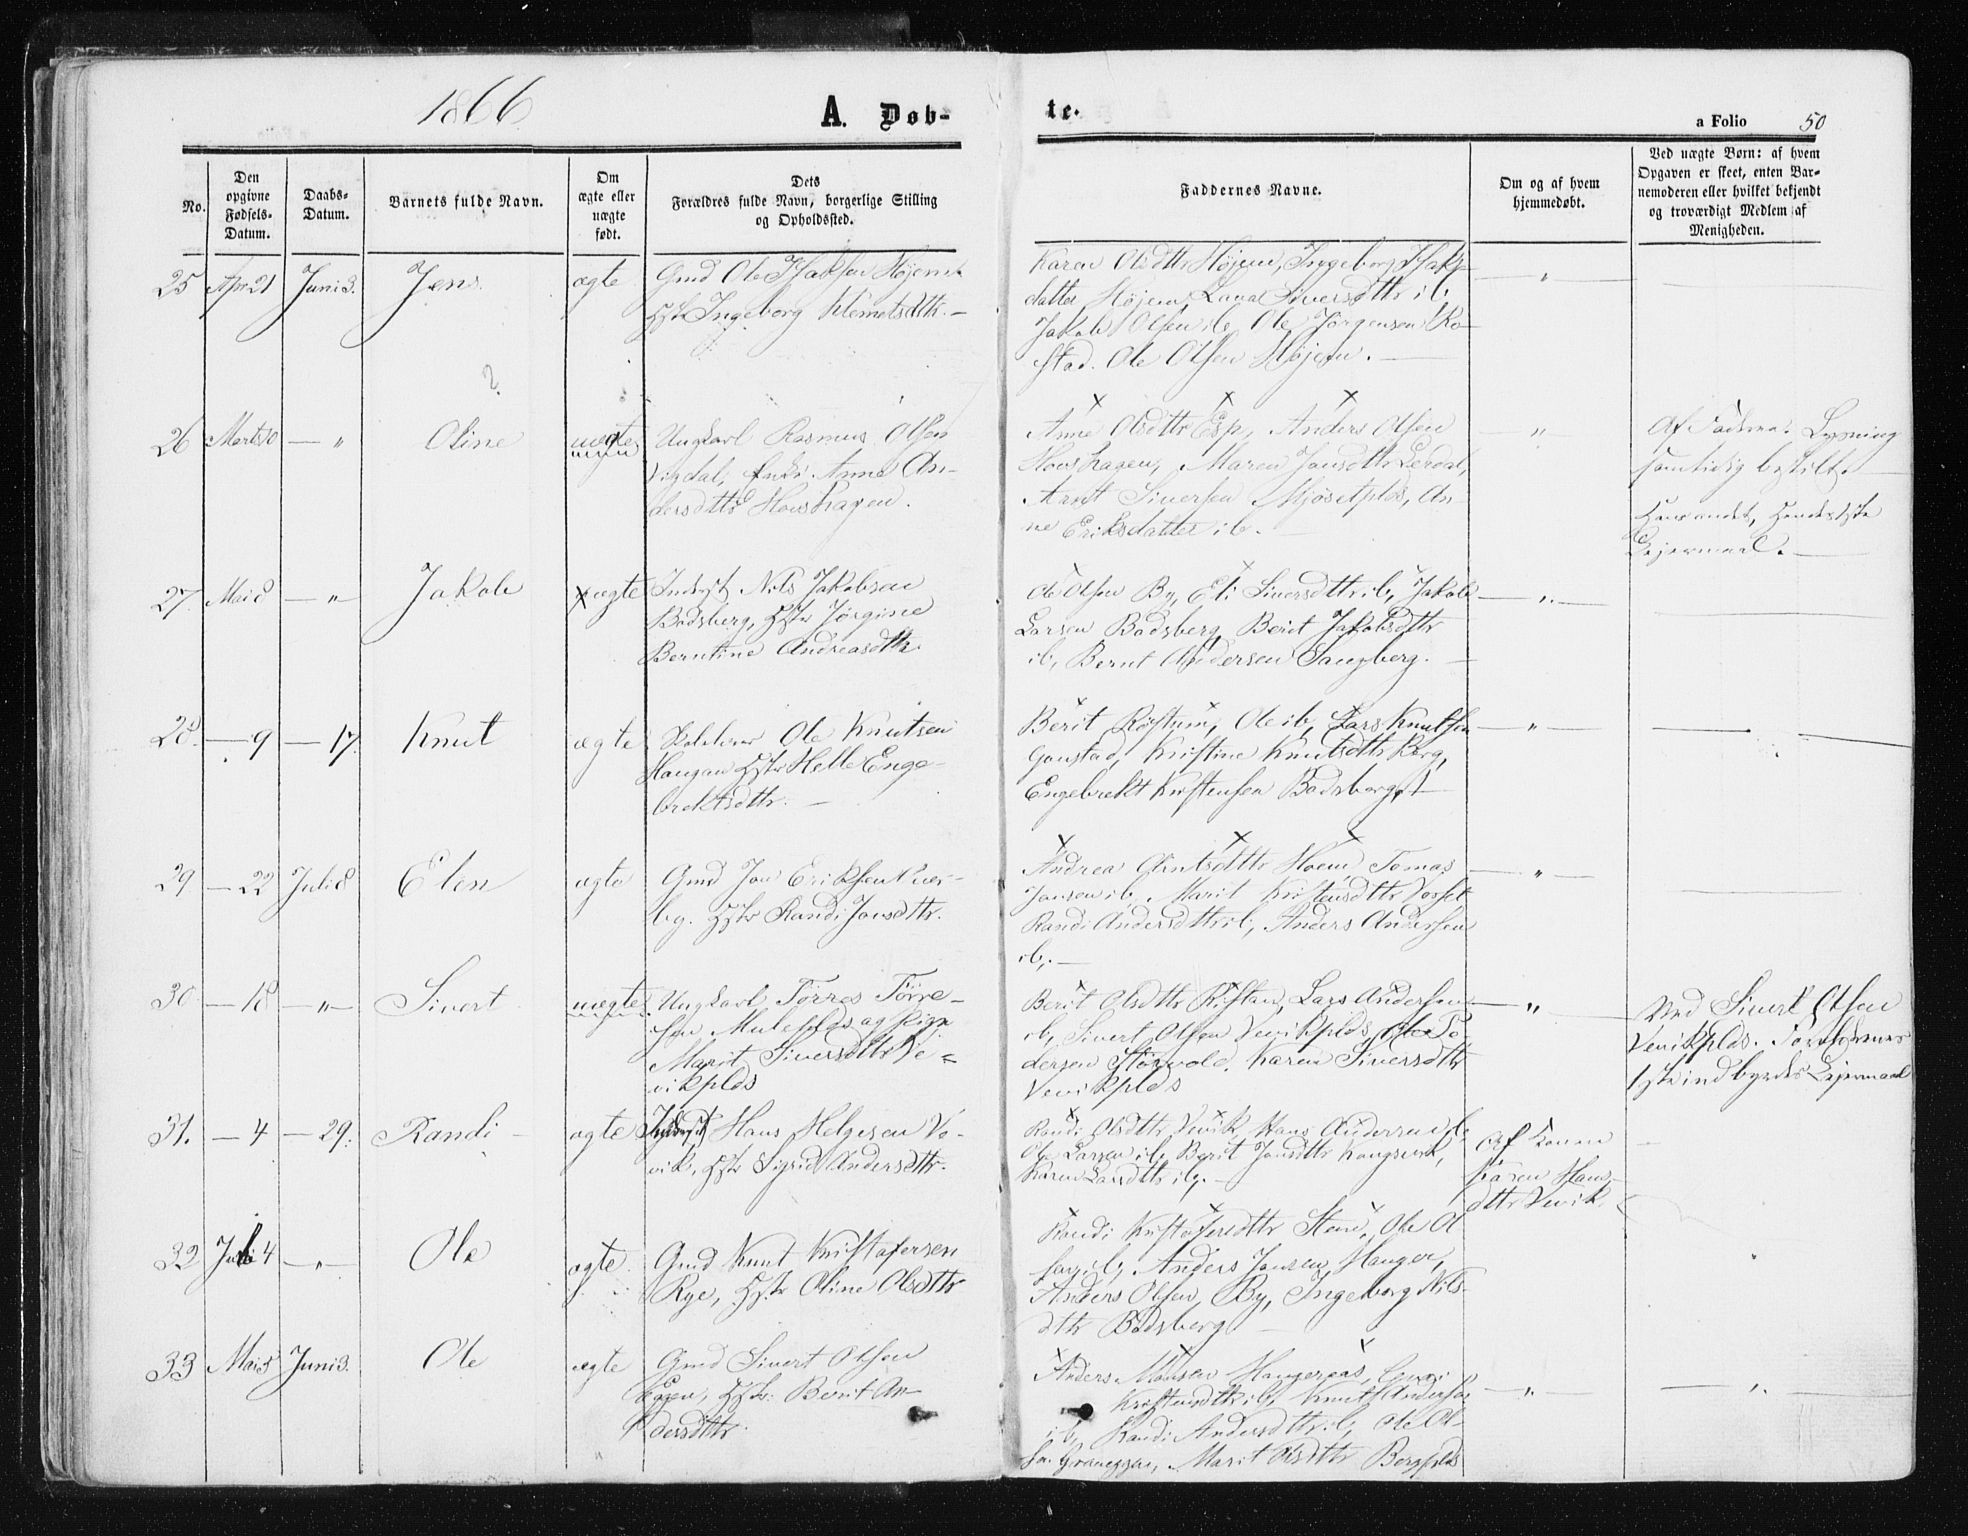 1866
A. Døb-
te.
a Folio 50
No.
Den opgivne Fødsels-Datum.
Daabs-Datum.
Barnets fulde Navn.
Om ægte eller uægte født.
Dets Forældres fulde Navn, borgerlige Stilling og Opholdssted.
Faddernes Navne.
Om og af hvem hjemmedøbt.
Ved uægte Børn: af hvem Opgaven er skeet, enten Barnemoderen eller hvilket bekjendt og troværdigt Medlem af Menigheden.
25 Apr 21 Juni 3. Jens ægte
Gmd Ole Højem
Ingeborg Klemetsdtr. —
Karen Olsdttr Højem, Ingeborg
datter Højem, Sivertsdttr ib
Jakob Olsen ib, Ole Jørgensen Ro-
stad. Ole Olsen Højem. —
26 Marts 10 — " Oline uægte
Ungkarl Rasmus Olsen
Anne An-
dersdttr Hovshagen.
Anne Olsdttr Esp, Anders Olsen
Hovshagen, Maren Jansdttr Lerdal,
Arnt Sivertsen Mjøsetplds, An-
ne Eriksdatter ib. —
Af Faderen. Lysning
samtidig bestilt. —
Hans andet, Hendes 1ste
Lejermaal. —
27 Mai 8 — " — Jakob ægte
Inderst Nils Jakobsen
Badsberg, Hstr Jørgine
Berntine Andreasdttr
Ole Olsen By, Eli Siversdttr ib, Jakob
Larsen Badsberg, Berit Jakobsdttr
ib, Bernt Andersen Sangberg. —
28. — 9 — 17. Knut ægte
Ole Knutsen
Haugan Hstr Helle Enge-
brektsdttr. —
Berit Røstum, Ole ib, Lars Knutsen
Gaustad, Kristine Knutsdttr Berg,
Engebrekt Kristensen Badsberg
29 — 22 Juli 8 Elen ægte
Gmd Jon Eriksen Kver-
bg. Hstr Randi Jonsdttr.
Andrea Arntsdttr Hoem, Tomas
Jansen ib, Marit Kristensdttr Vosset
Randi Andersdttr ib, Anders Andersen
ib. —
30 — 18 — " — Sivert uægte
Ungkarl Tørres Tørre-
sen og Pige
Marit Siversdttr Ve-
vikplds
Berit Olsdttr Ristan, Lars Andersen
ib, Sivert Olsen Vevikplds, Ole Pe-
dersen Størvold, Karen Siversdttr
Vevikplds
Ved Sivert Olsen
Vevikplds. Forældrenes
1ste indbyrdes Lejermaal
31. — 4 — 29. Randi ægte
Inderst Hans Helgesen Ve-
vik, Hstr Sigrid Andersdttr.
Randi Olsdttr Vevik, Hans Andersen ib,
Ole Larsen ib, Berit Jonsdttr Kongsvik,
Karen Larsdttr ib. —
Af Konen
Karen Hans-
dttr Vevik.
32 Juli 4 — " — Ole ægte.
Gmd Knut Kristofersen
Rye, Hstr Oline Olsdttr
Randi Kristofersdttr Stene, Ole Ol-
sen ib, Anders Jansen Hanger,
Anders Olsen By, Ingeborg Nils-
dttr Badsberg —
33 Mai 5 Juni 3. Ole ægte
Gmd Sivert Olsen
Eggen, Hstr. Berit An-
dersdttr.
Anders Monsen
Kristensdttr ib, Knut Andersen
ib, Randi Andersdttr ib, Ole Ol-
sen Graneggen, Marit Olsdttr Bergplds